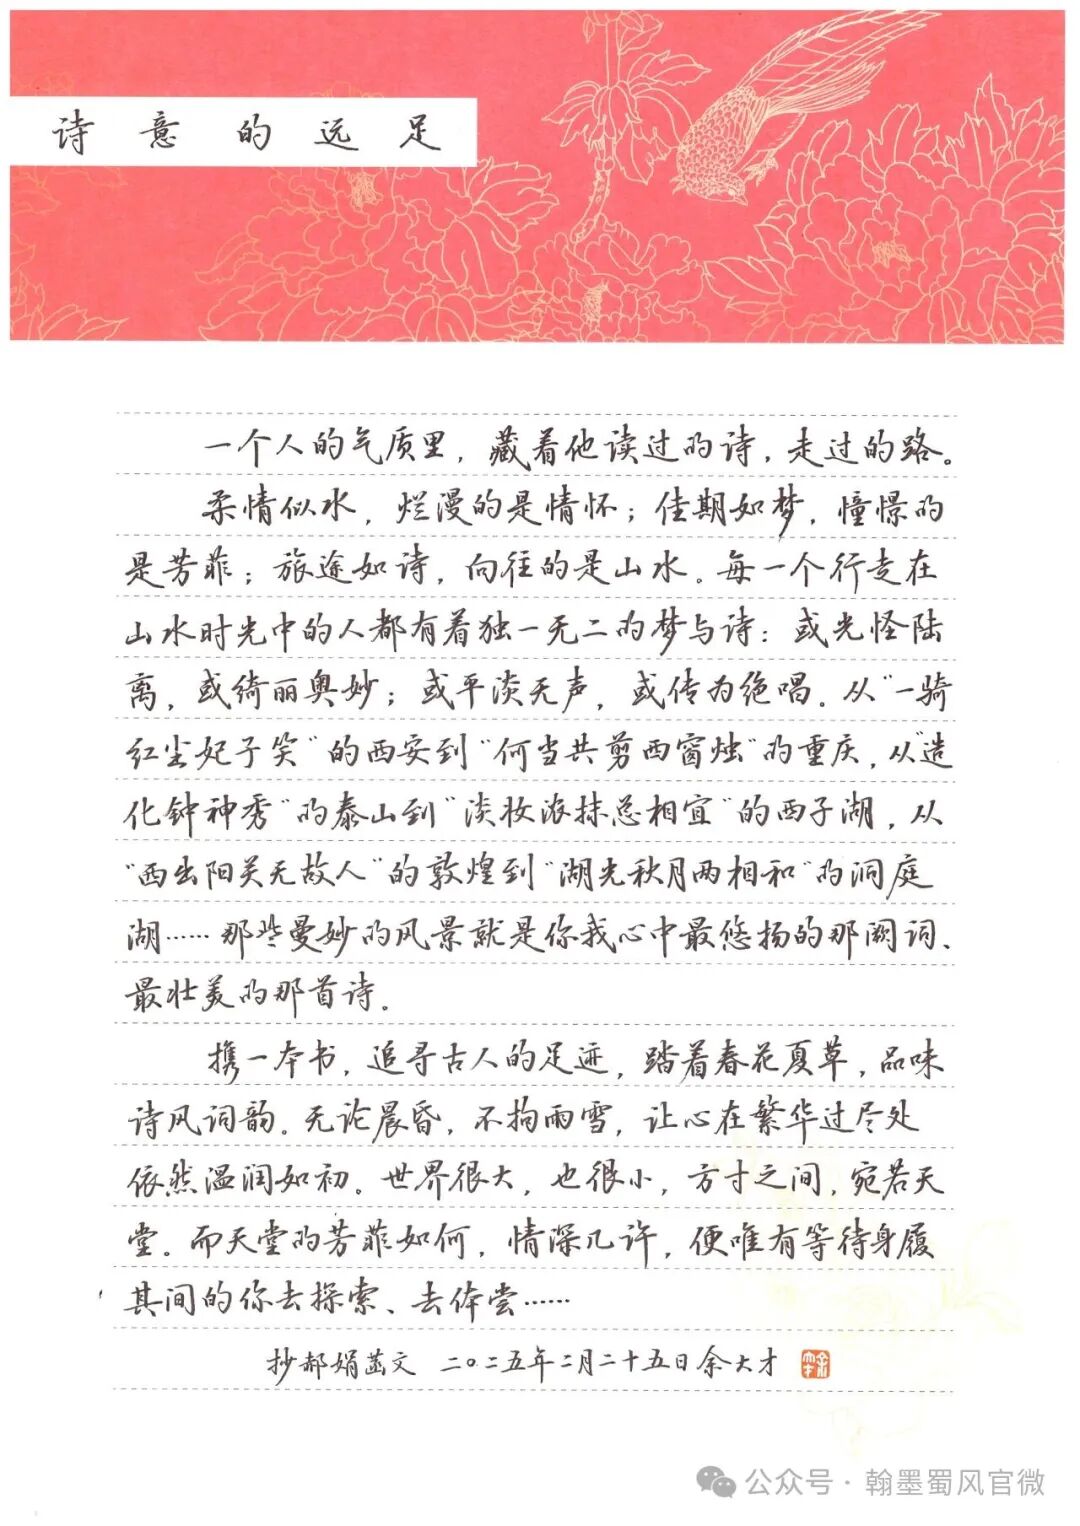 诗意的远足
一个人的气质里，藏着他读过的诗，走过的路。
柔情似水，烂漫的是情怀；佳期如梦，憧憬的
是芳菲；旅途如诗，向往的是山水。每一个行走在
山水时光中的人都有着独一无二的梦与诗：或光怪陆
离，或绮丽奥妙；或平淡无声，或传为绝唱。从“一骑
红尘妃子笑”的西安到“何当共剪西窗烛”的重庆，从“造
化钟神秀”的泰山到“淡妆浓抹总相宜”的西子湖，从
“西出阳关无故人”的敦煌到“湖光秋月两相和”的洞庭
湖……那些曼妙的风景就是你我心中最悠扬的那阙词、
最壮美的那首诗。
携一本书，追寻古人的足迹，踏着春花夏草，品味
诗风词韵。无论晨昏，不拘雨雪，让心在繁华过尽处
依然温润如初。世界很大，也很小，方寸之间，宛若天
堂。而天堂的芳菲如何，情深几许，便唯有等待身履
其间的你去探索、去体尝……
抄郝娟菡文 二〇二五年二月二十五日余大才
公众号·翰墨蜀风官微